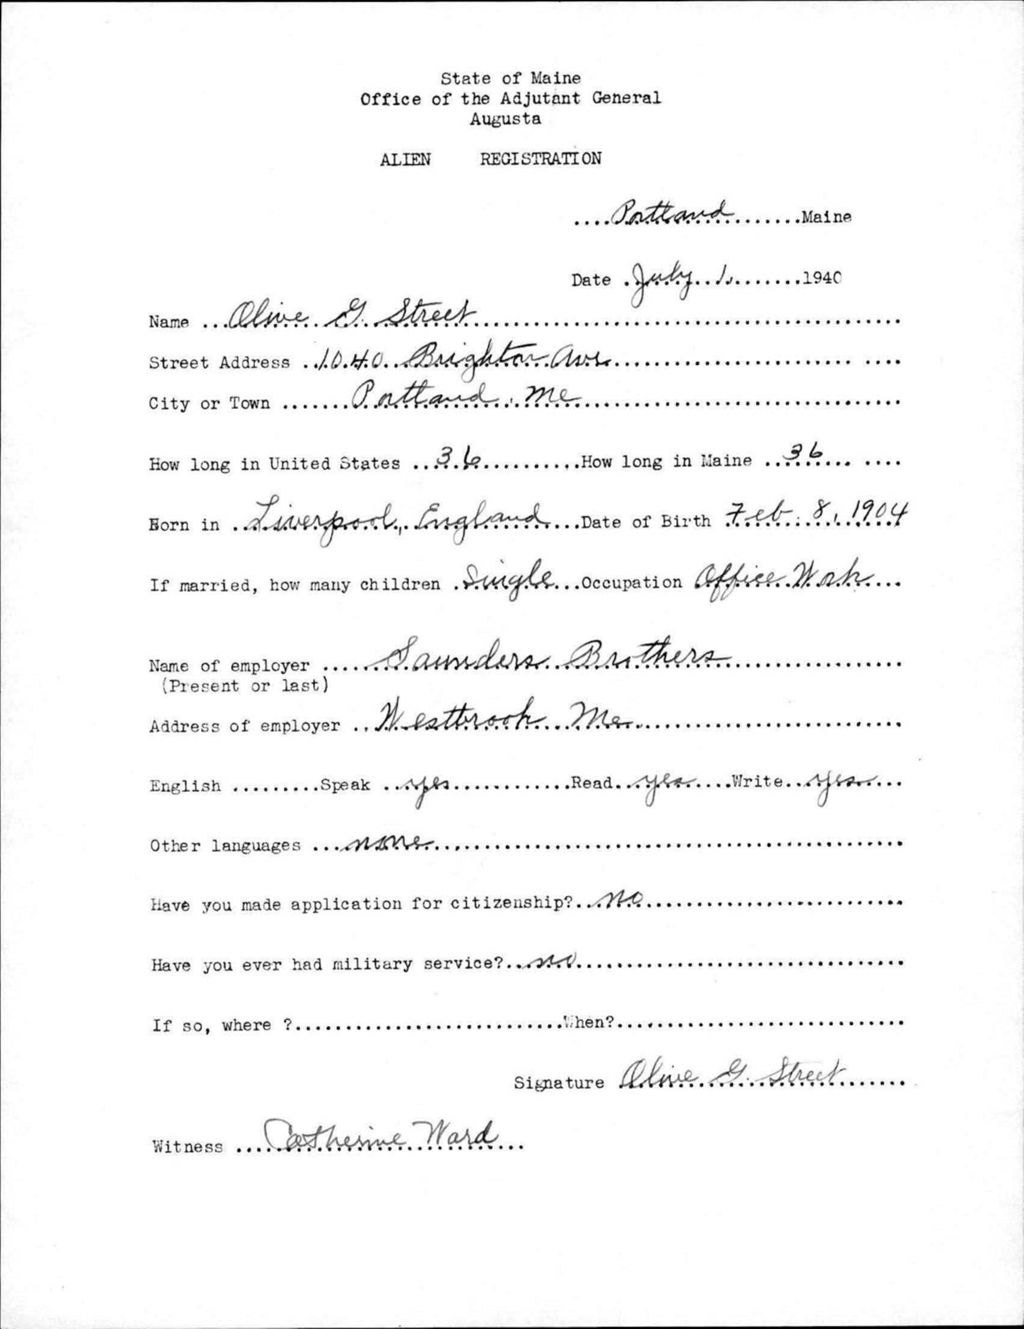 State of Maine
Office of the Adjutant General
Augusta
ALIEN REGISTRATION
....Portland........Maine
Date .July 1........1940
Name ...Olive G. Street...........................................
Street Address ..1040 Brighton Ave............................ ....
City or Town .......Portland, Me...................................
How long in United States ..36...........How long in Maine ..36...... ....
Born in ..Liverpool, England...Date of Birth Feb. 8, 1904
If married, how many children .Single...Occupation Office Work...
Name of employer ......Saunders Brothers..................
(Present or last)
Address of employer ..Westbrook Me............................
English .........Speak ..yes.............Read..yes.....Write..yes....
Other languages ...none...............................................
Have you made application for citizenship?..no..........................
Have you ever had military service?..no.................................
If so, where ?...........................When?.............................
Signature Olive G. Street.......
Witness ....Catherine Ward...